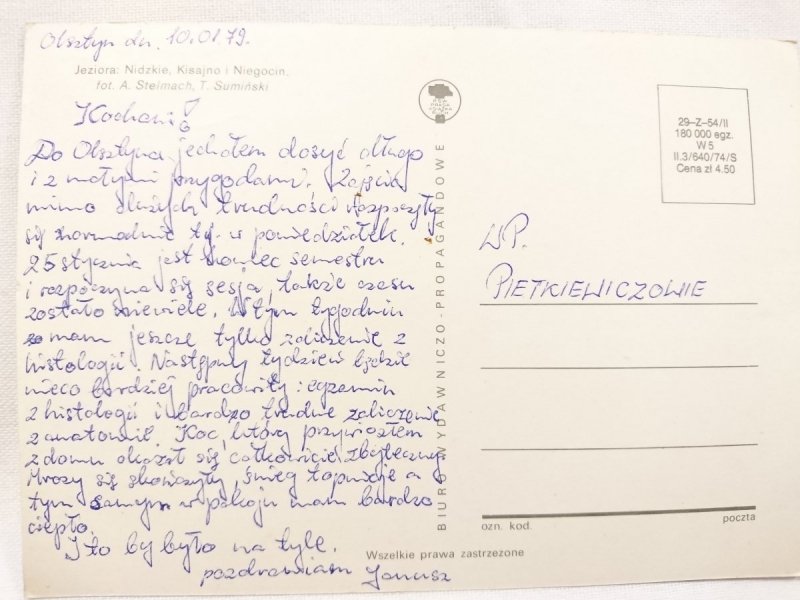 Olsztyn dn. 10.01.79.
Jeziora: Nidzkie, Kisajno i Niegocin.
fot. A. Stelmach, T. Sumiński
Kochani!
Do Olsztyna jechałem dosyć długo
i z małymi przygodami. Zajęcia
mimo dużych trudności rozpoczęły
się normalnie tj. w poniedziałek.
25 stycznia jest koniec semestru
i rozpoczyna się sesja, także czasu
zostało niewiele. W tym tygodniu
mam jeszcze tylko zaliczenie z
histologii. Następny tydzień będzie
nieco bardziej pracowity: egzamin
z histologii i bardzo trudne zaliczenie
z anatomii. Koc, który przywiozłem
z domu okazał się całkowicie zbyteczny.
Mrozy się skończyły, śnieg topnieje a
tym samym w pokoju mam bardzo
ciepło.
I to by było na tyle.
pozdrawiam Janusz
BIURO WYDAWNICZO-PROPAGANDOWE
29-Z-54/II
180 000 egz.
W 5
II.3/640/74/S
Cena zł 4.50
WP.
PIETKIEWICZOWIE
ozn. kod.
poczta
Wszelkie prawa zastrzeżone